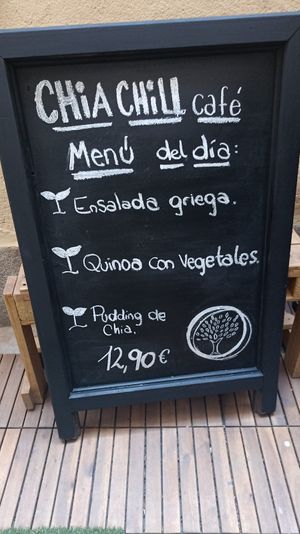 CHIA CHILL café
Menú del día:
Ensalada griega.
Quinoa con Vegetales.
Pudding de
Chia.
12,90€